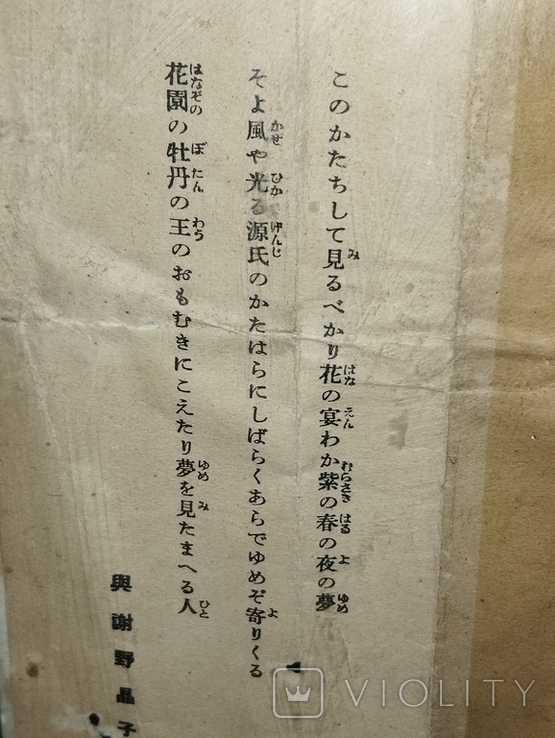 このかたちして見るべかり花の宴わか紫の春の夜の夢
そよ風や光る源氏のかたはらにしばらくあらでゆめぞ寄りくる
花園の牡丹の王のおもむきにこえたり夢を見たまへる人
與謝野晶子
VIOLITY